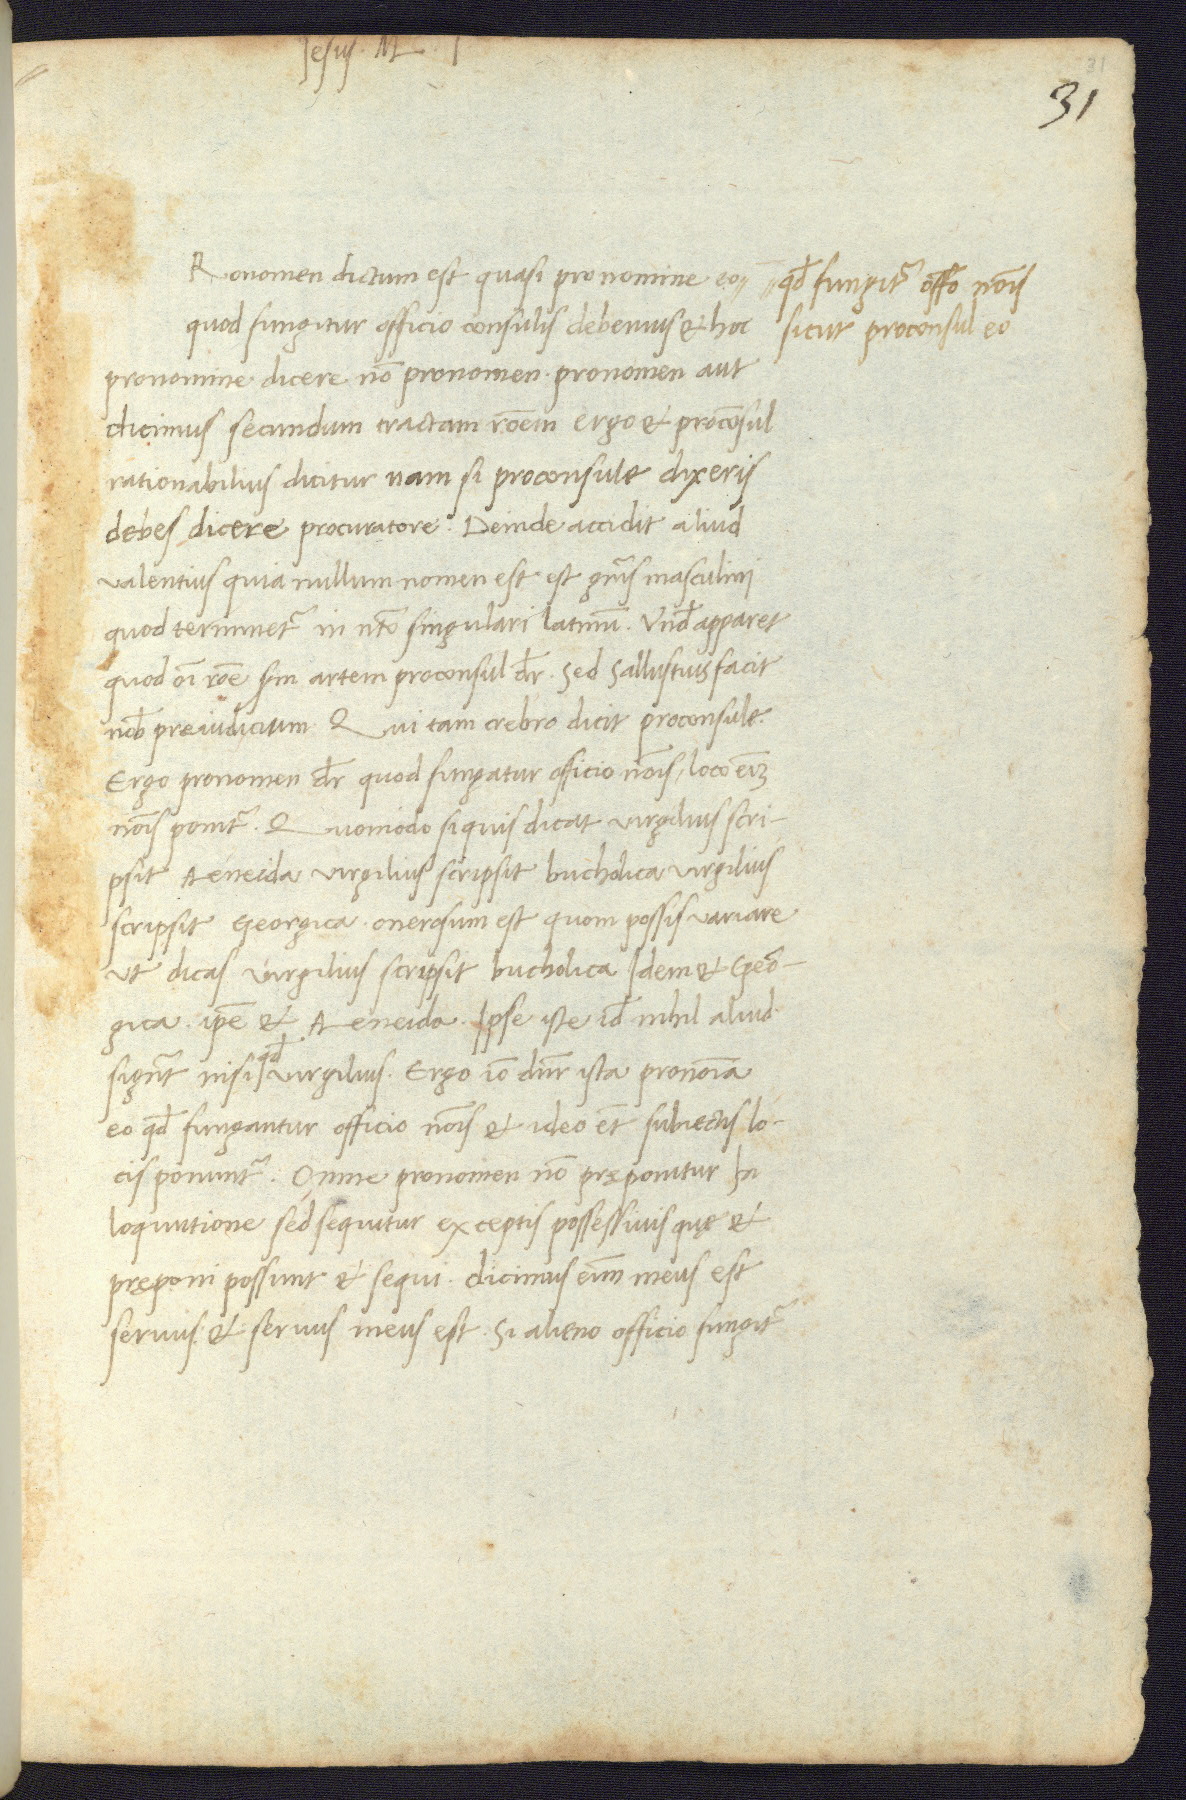 Jesus. M.
31
31
Ronomen dictum est quasi pro nomine eo // // qđ fungit᷑ offo nōis
quod fungitur officio consulis debemus & hoc sicut proconsul eo
pronomine dicere nō pronomen. pronomen aut
dicimus secundum tractam rōem ergo & procōsul
rationabilius dicitur nam si proconsule dixeris
debes dicere procuratore. Deinde accidit aliud
valentius quia nullum nomen est est gn̄is masculini
quod terminet᷑ in nt̄o singulari latinū. Vnđ apparet
quod oī rōe sm artem proconsul dr̄. Sed Sallustius facit
nob̄ preiudicium Qui tam crebro dicit proconsule.
Ergo pronomen dr̄ quod fungatur officio nōis, loco eīꝫ
nōis ponit᷑. Quomodo siquis dicat virgilius scri-
psit Aeneida virgilius scripsit bucholica virgilius
scripsit Georgica. onerosum est quom possis variare
ut dicas Virgilius scripsit bucholica Idem & Geo᷑-
gica. ip̄e & Aeneida. Ipse iste id̄ nihil aliud
sign̄t nisi qđ virgilius. Ergo iō dn̄r ista pronoīa
eo qđ fungantur officio nōis & ideo et̄ subiectis lo-
cis ponunt᷑. Omne pronomen nō pręponitur In
loquutione sed sequitur exceptis possessiuis quę &
pręponi possunt & sequi. dicimus eīm meus est
seruus. & seruus meus est. Si alieno officio fungit᷑